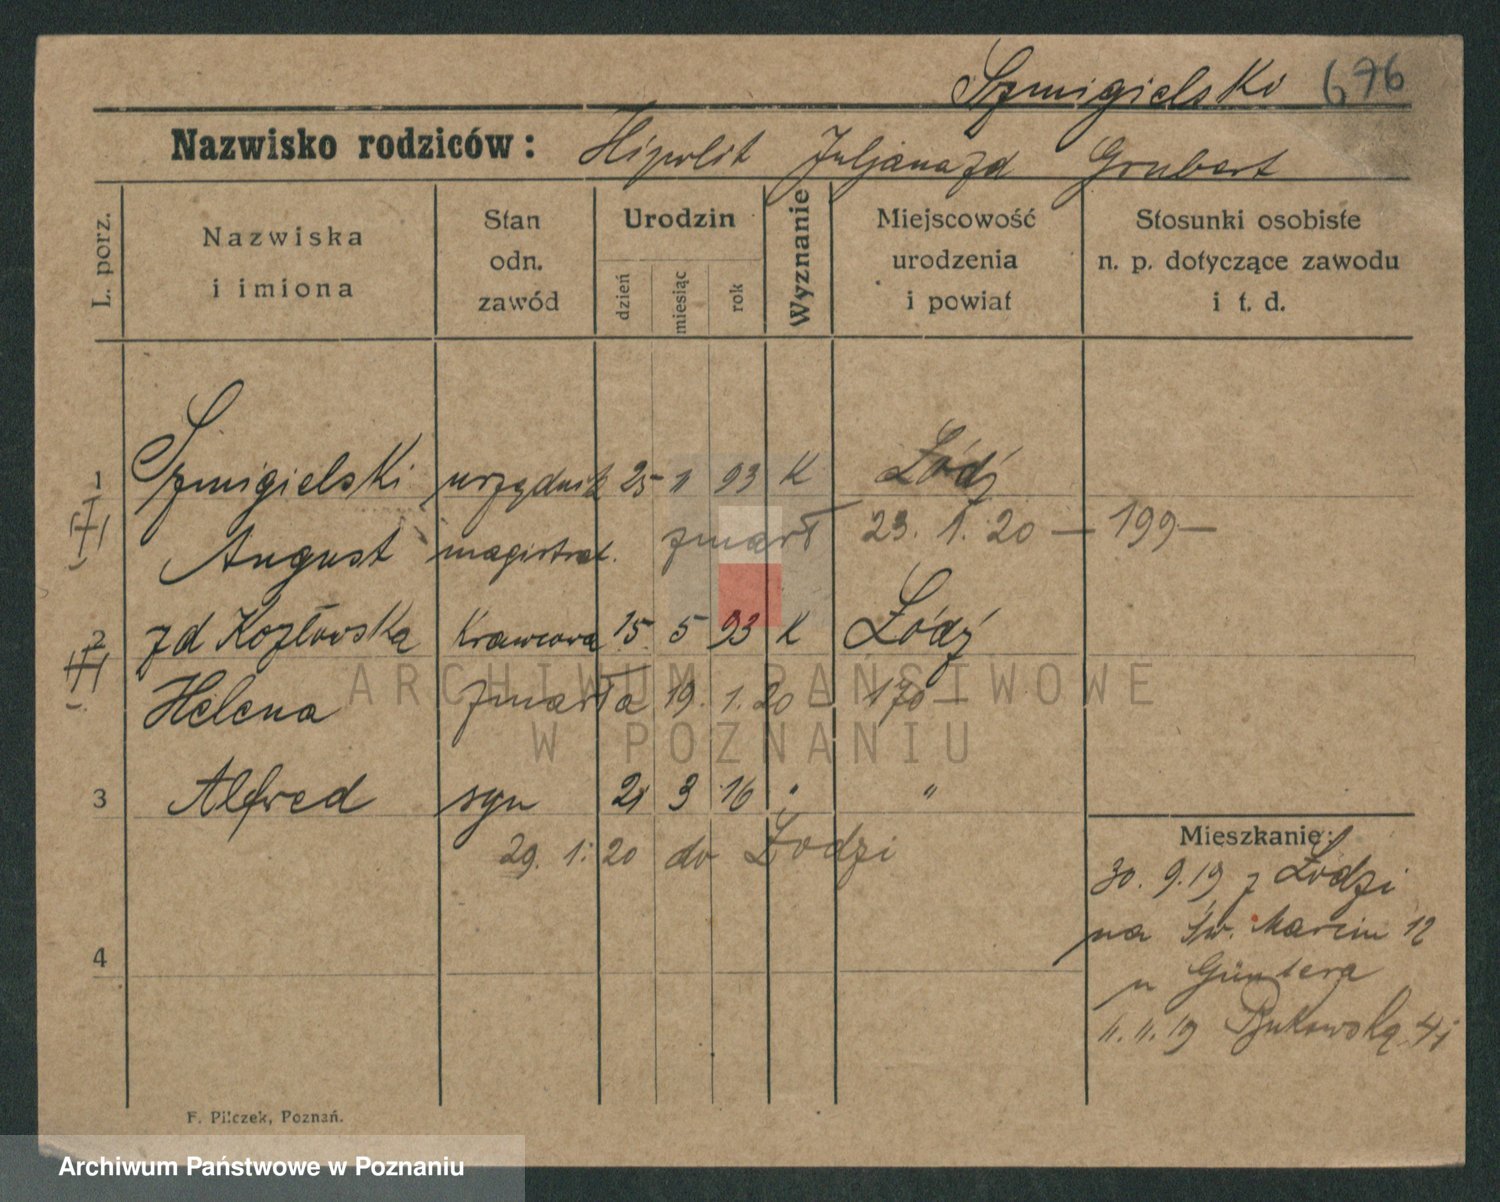 Szmigielski 676
Nazwisko rodziców: Hipolit Juljana zd Grubert
L. porz.
Nazwiska i imiona
Stan odn. zawód
Urodzin
dzień miesiąc rok
Wyznanie
Miejscowość urodzenia i powiat
Stosunki osobiste n. p. dotyczące zawodu i t. d.
1 Szmigielski urzędnik 25 1 93 K Łódź
August magistrat. zmarł 23. 1. 20 — 199 —
2 zd Kozłowska Krawcowa 15. 5 93 K Łódź
Helena zmarła 19. 1. 20 — 170 —
3 Alfred syn 21 3 16 " "
29. 1. 20 do Łodzi
4
Mieszkanie:
30. 9. 19 z Łodzi
na Św. Marcin 12
u Güntera
11. 11. 19 Bukowską
F. Pilczek, Poznań.
ARCHIWUM PAŃSTWOWE
W POZNANIU
Archiwum Państwowe w Poznaniu